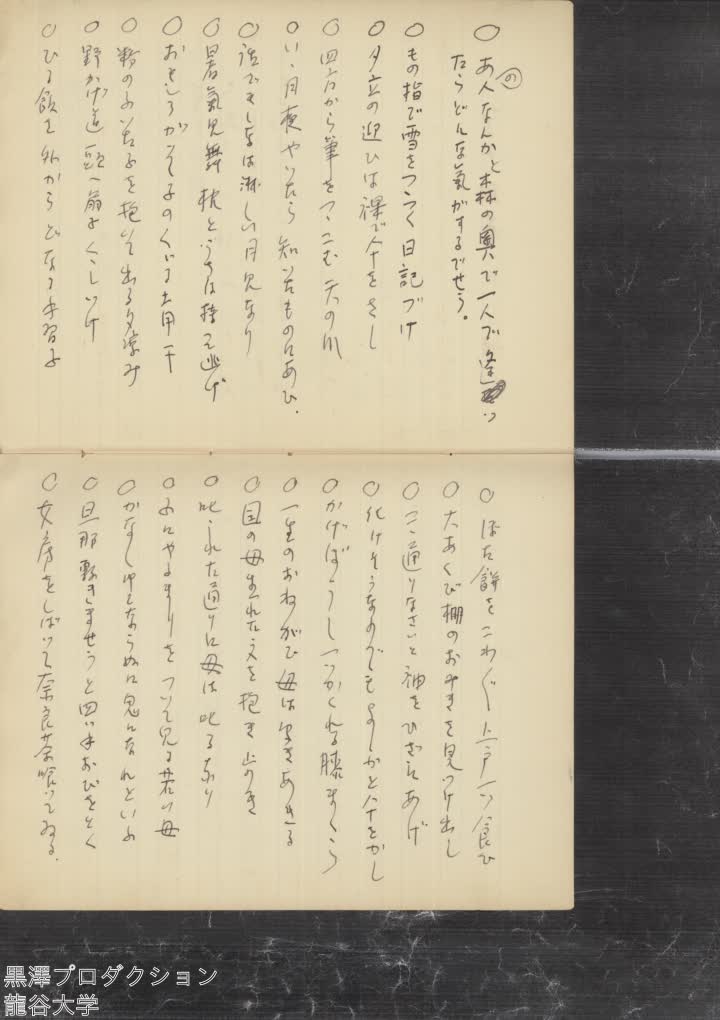 ○あの人なんかと森の奥で一人で逢つ
たらどんな氣がするでせう。
○もの指で雪をつつく日記づけ
○夕立の迎ひは裸で傘をさし
○四方から筆をつつこむ天の川
○いゝ月夜やいたら知いたものにあひ、
○後でもしなは淋しい月見なり
○暑氣見舞枕とうちは持つて逃げ
○おもしろがつて子のくゞる土用干
○粉のふいた子を抱いて出る夕涼み
○野がけ道 へ扇子くゝしつけ
○ひる飯を外からどなる手習子
○ぼた餅をこわぐ上戸一つ食ひ
○大あくび棚のおやきを見つけ出し
○こゝ通りなさいと袖をひざにあげ
○化けそうなのでもよしかと傘をかし
○かげぼうし一つかくれる膝まくら
○一生のおねがひ母はききあきる
○国の母生れた文を抱きあるき
○叱られた通りに母は叱るなり
○ふにやまりをついて見る若い母
○かなしゆくならぬに鬼になれといふ
○旦那 きませうと四つ手おびをとく
○女房をしばつて奈良茶喰つてゐる。
黒澤プロダクション
龍谷大学